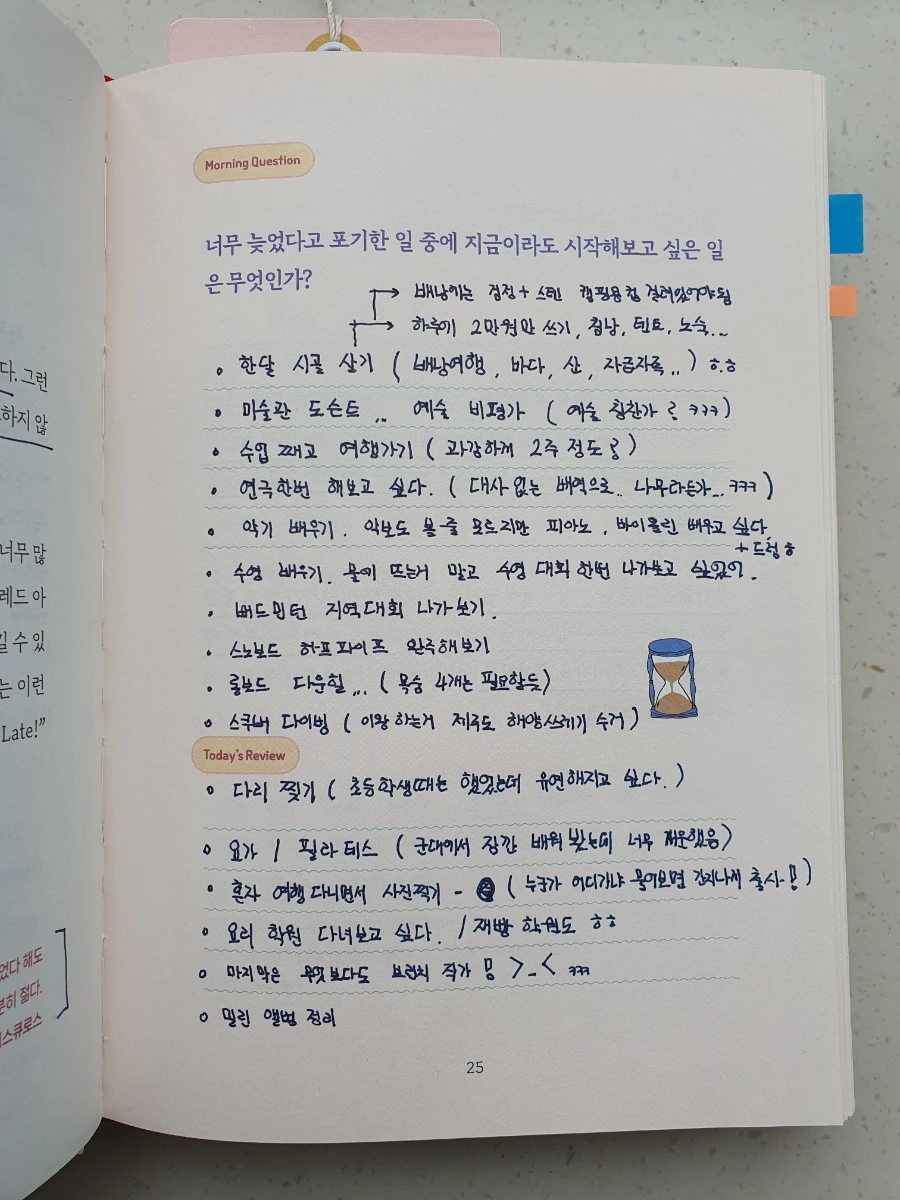 다. 그런
하지 않
너무 많
레드 아
길 수 있
는 이런
Late!”
었다 해도
분히 젊다.
스큐로스
Morning Question
너무 늦었다고 포기한 일 중에 지금이라도 시작해보고 싶은 일
은 무엇인가?
→ 배낭에는 검정 + 스텐 캠핑용 컵 걸려있어야됨
→ 하루에 2만원만 쓰기, 침낭, 텐트, 노숙...
• 한달 시골 살기 ( 배낭여행, 바다, 산, 자급자족.. ) ㅎ.ㅎ
• 미술관 도슨트 .. 예술 비평가 ( 예술 칭찬가? ㅋㅋㅋ )
• 수업 째고 여행가기 ( 과감하게 2주 정도? )
• 연극한번 해보고 싶다. ( 대사 없는 배역으로.. 나무라든가... ㅋㅋㅋ )
• 악기 배우기. 악보도 볼 줄 모르지만 피아노, 바이올린 배우고 싶다.
+ 드럼 ㅎ
• 수영 배우기. 물에 뜨는거 말고 수영 대회 한번 나가보고 싶었어.
• 배드민턴 지역대회 나가보기.
• 스노보드 하프파이프 완주해보기
• 롱보드 다운힐... ( 목숨 4개는 필요할듯 )
• 스쿠버 다이빙 ( 이왕 하는거 제주도 해양쓰레기 수거 )
Today's Review
• 다리 찢기 ( 초등학생때는 했었는데 유연해지고 싶다. )
• 요가 / 필라테스 ( 군대에서 잠깐 배워봤는데 너무 개운했음 )
• 혼자 여행 다니면서 사진찍기 - ( 누군가 어디가냐 물어보면 간지나게 출사-!! )
• 요리 학원 다녀보고 싶다. / 제빵 학원도 ㅎㅎ
• 마지막은 무엇보다도 브런치 작가 !! >_< ㅋㅋㅋ
• 밀린 앨범 정리
25